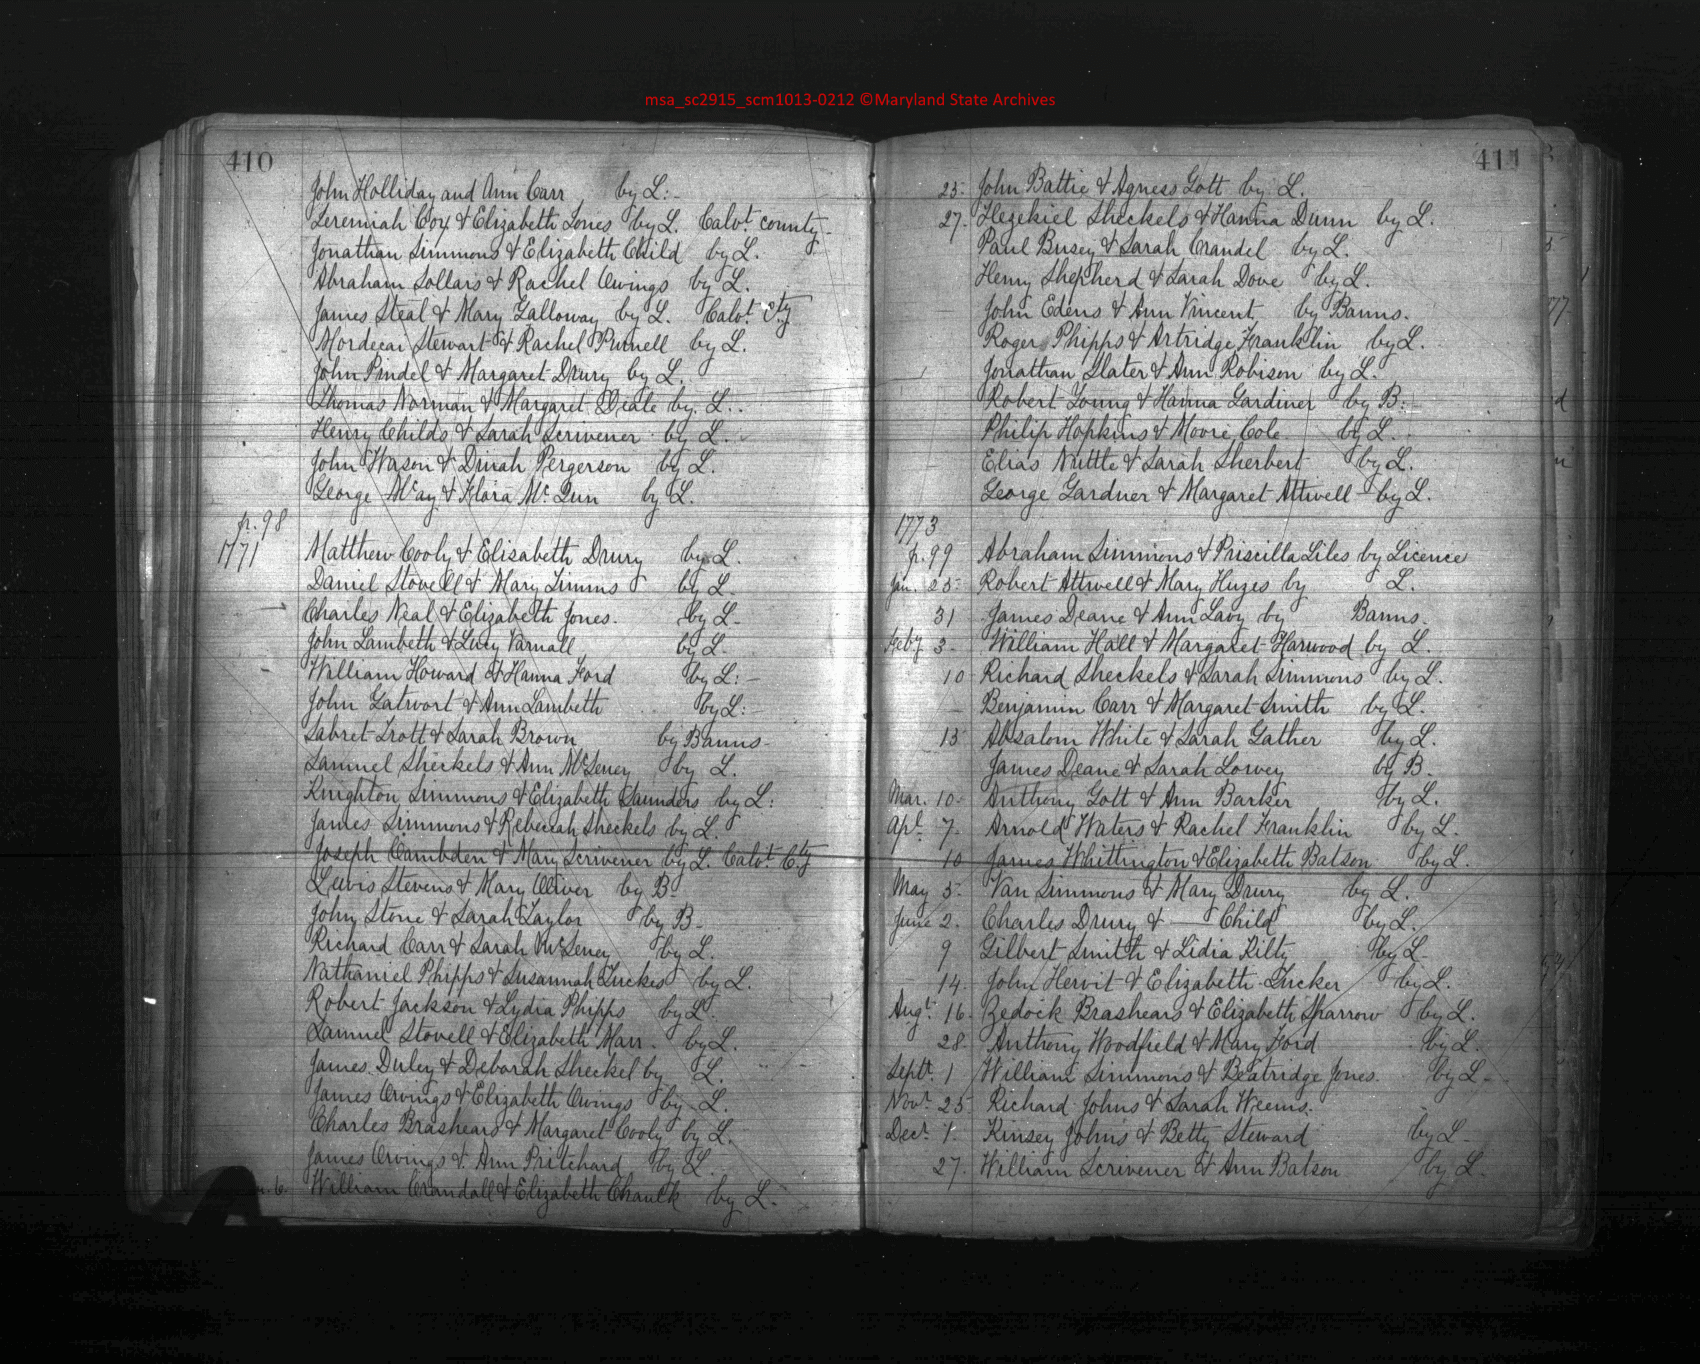 msa_sc2915_scm1013-0212 ©Maryland State Archives
410
John Holliday and Ann Carr by L:-
Jeremiah Cox & Elizabeth Jones by L. Calvt. county-
Jonathan Simmons & Elizabeth Child by L.
Abraham Sollars & Rachel Owings by L.
James Steal & Mary Galloway by L. Calvt. Cty
Mordecai Stewart & Rachel Purnell by L.
John Pindel & Margaret Drury by L.
Thomas Norman & Margaret Deale by L..
Henry Childs & Sarah Scrivener by L.
John Wason & Dinah Fergerson by L.
George McCay & Flora Mc Qun by L.
p. 98
1771 Matthew Cooly & Elisabeth Drury by L.
Daniel Stovell & Mary Timms by L.
Charles Neal & Elizabeth Jones. by L-
John Lambeth & Lucy Varnall by L.
William Howard & Hanna Ford by L:-
John Gatwort & Ann Lambeth by L:-
Sabret Trott & Sarah Brown by Banns-
Samuel Sheckels & Ann McSeney by L.
Knighton Simmons & Elizabeth Saunders by L:
James Simmons & Rebeccah Sheckels by L.
Joseph Cambden & Mary Scrivener by L. Calvt. Cty
Lewis Stevens & Mary Oliver by B-
John Stone & Sarah Taylor by B-
Richard Carr & Sarah McSeney by L.
Nathaniel Phipps & Susannah Tucker by L.
Robert Jackson & Lydia Phipps by L.
Samuel Stovell & Elizabeth Marr. by L.
James Duley & Deborah Sheckel by L.
James Owings & Elizabeth Owings by L.
Charles Brashears & Margaret Cooly by L.
James Owings & Ann Pritchard by L.
6 William Crandall & Elizabeth Chaulk by L.
411
25. John Battie & Agness Gott by L.
27. Hezekiel Sheckels & Hanna Dunn by L.
Paul Busey & Sarah Crandel by L.
Henry Shepherd & Sarah Dove by L.
John Edens & Ann Vincent, by Banns.
Roger Phipps & Artridge Franklin by L.
Jonathan Slater & Ann Robison by L.
Robert Young & Hanna Gardiner by B:
Philip Hopkins & Moore Cole by L.
Elias Nuttle & Sarah Sherbert by L.
George Gardner & Margaret Attwell by L.
1773
p. 99 Abraham Simmons & Priscilla Liles by Licence
Jan. 25. Robert Attwell & Mary Huzes by L.
31 James Deane & Ann Lavy by Banns.
Feby. 3- William Hall & Margaret Harwood by L.
10 Richard Sheckels & Sarah Simmons by L.
Benjamin Carr & Margaret Smith by L.
13 Absalom White & Sarah Gather by L.
James Deane & Sarah Lowey by B-
Mar. 10. Anthony Gott & Ann Barker by L.
Apl. 7. Arnold Waters & Rachel Franklin by L.
10 James Whittington & Elizabeth Batson by L.
May 5. Van Simmons & Mary Drury by L.
June 2. Charles Drury & —— Child by L.
9 Gilbert Smith & Lidia Kilty by L-
14. John Hervit & Elizabeth Tucker by L.
Augt. 16. Zedock Brashears & Elizabeth Sparrow by L.
28. Anthony Woodfield & Mary Ford by L.
Septr. 1 William Simmons & Beatridge Jones. by L-
Novr. 25 Richard Johns & Sarah Weems.
Decr. 1. Kinsey Johns & Betty Steward by L-
27. William Scrivener & Ann Batson by L.